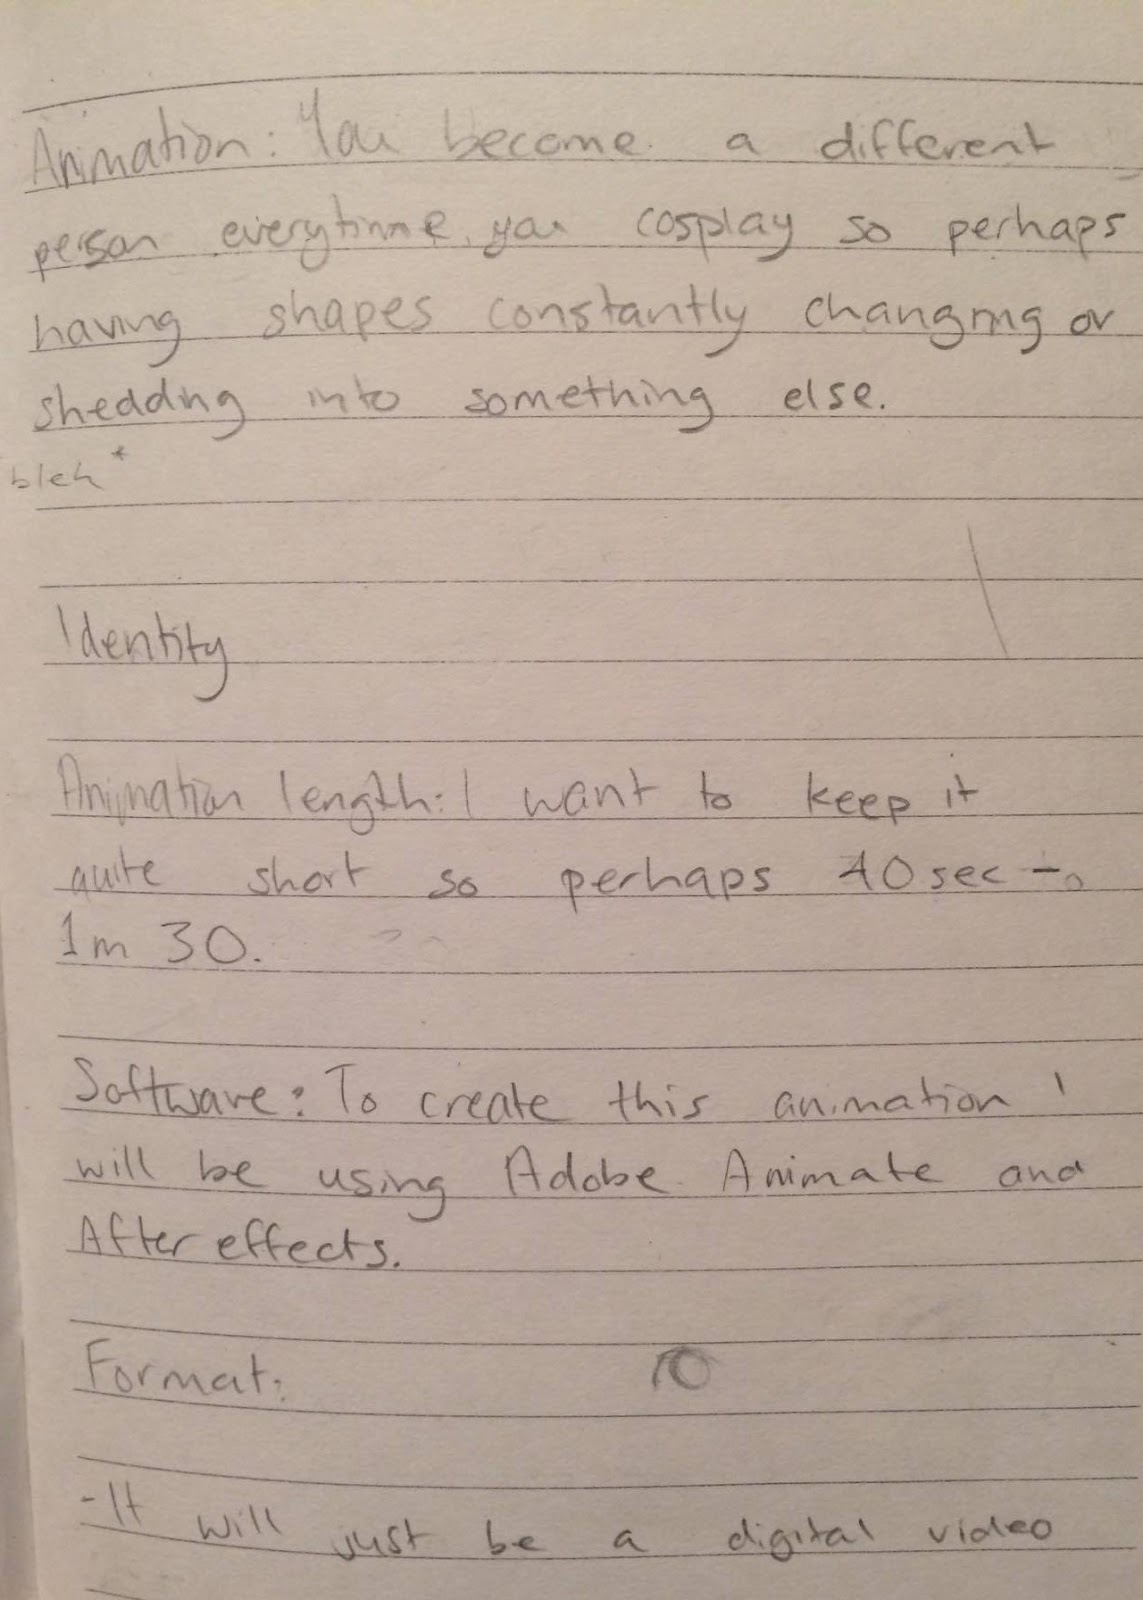 Animation: You become a different
person everytime you cosplay so perhaps
having shapes constantly changing or
shedding into something else.
bleh *
Identity
Animation length: I want to keep it
quite short so perhaps 40sec -
1m 30.
Software: To create this animation I
will be using Adobe Animate and
After effects.
Format:
- It will just be a digital video